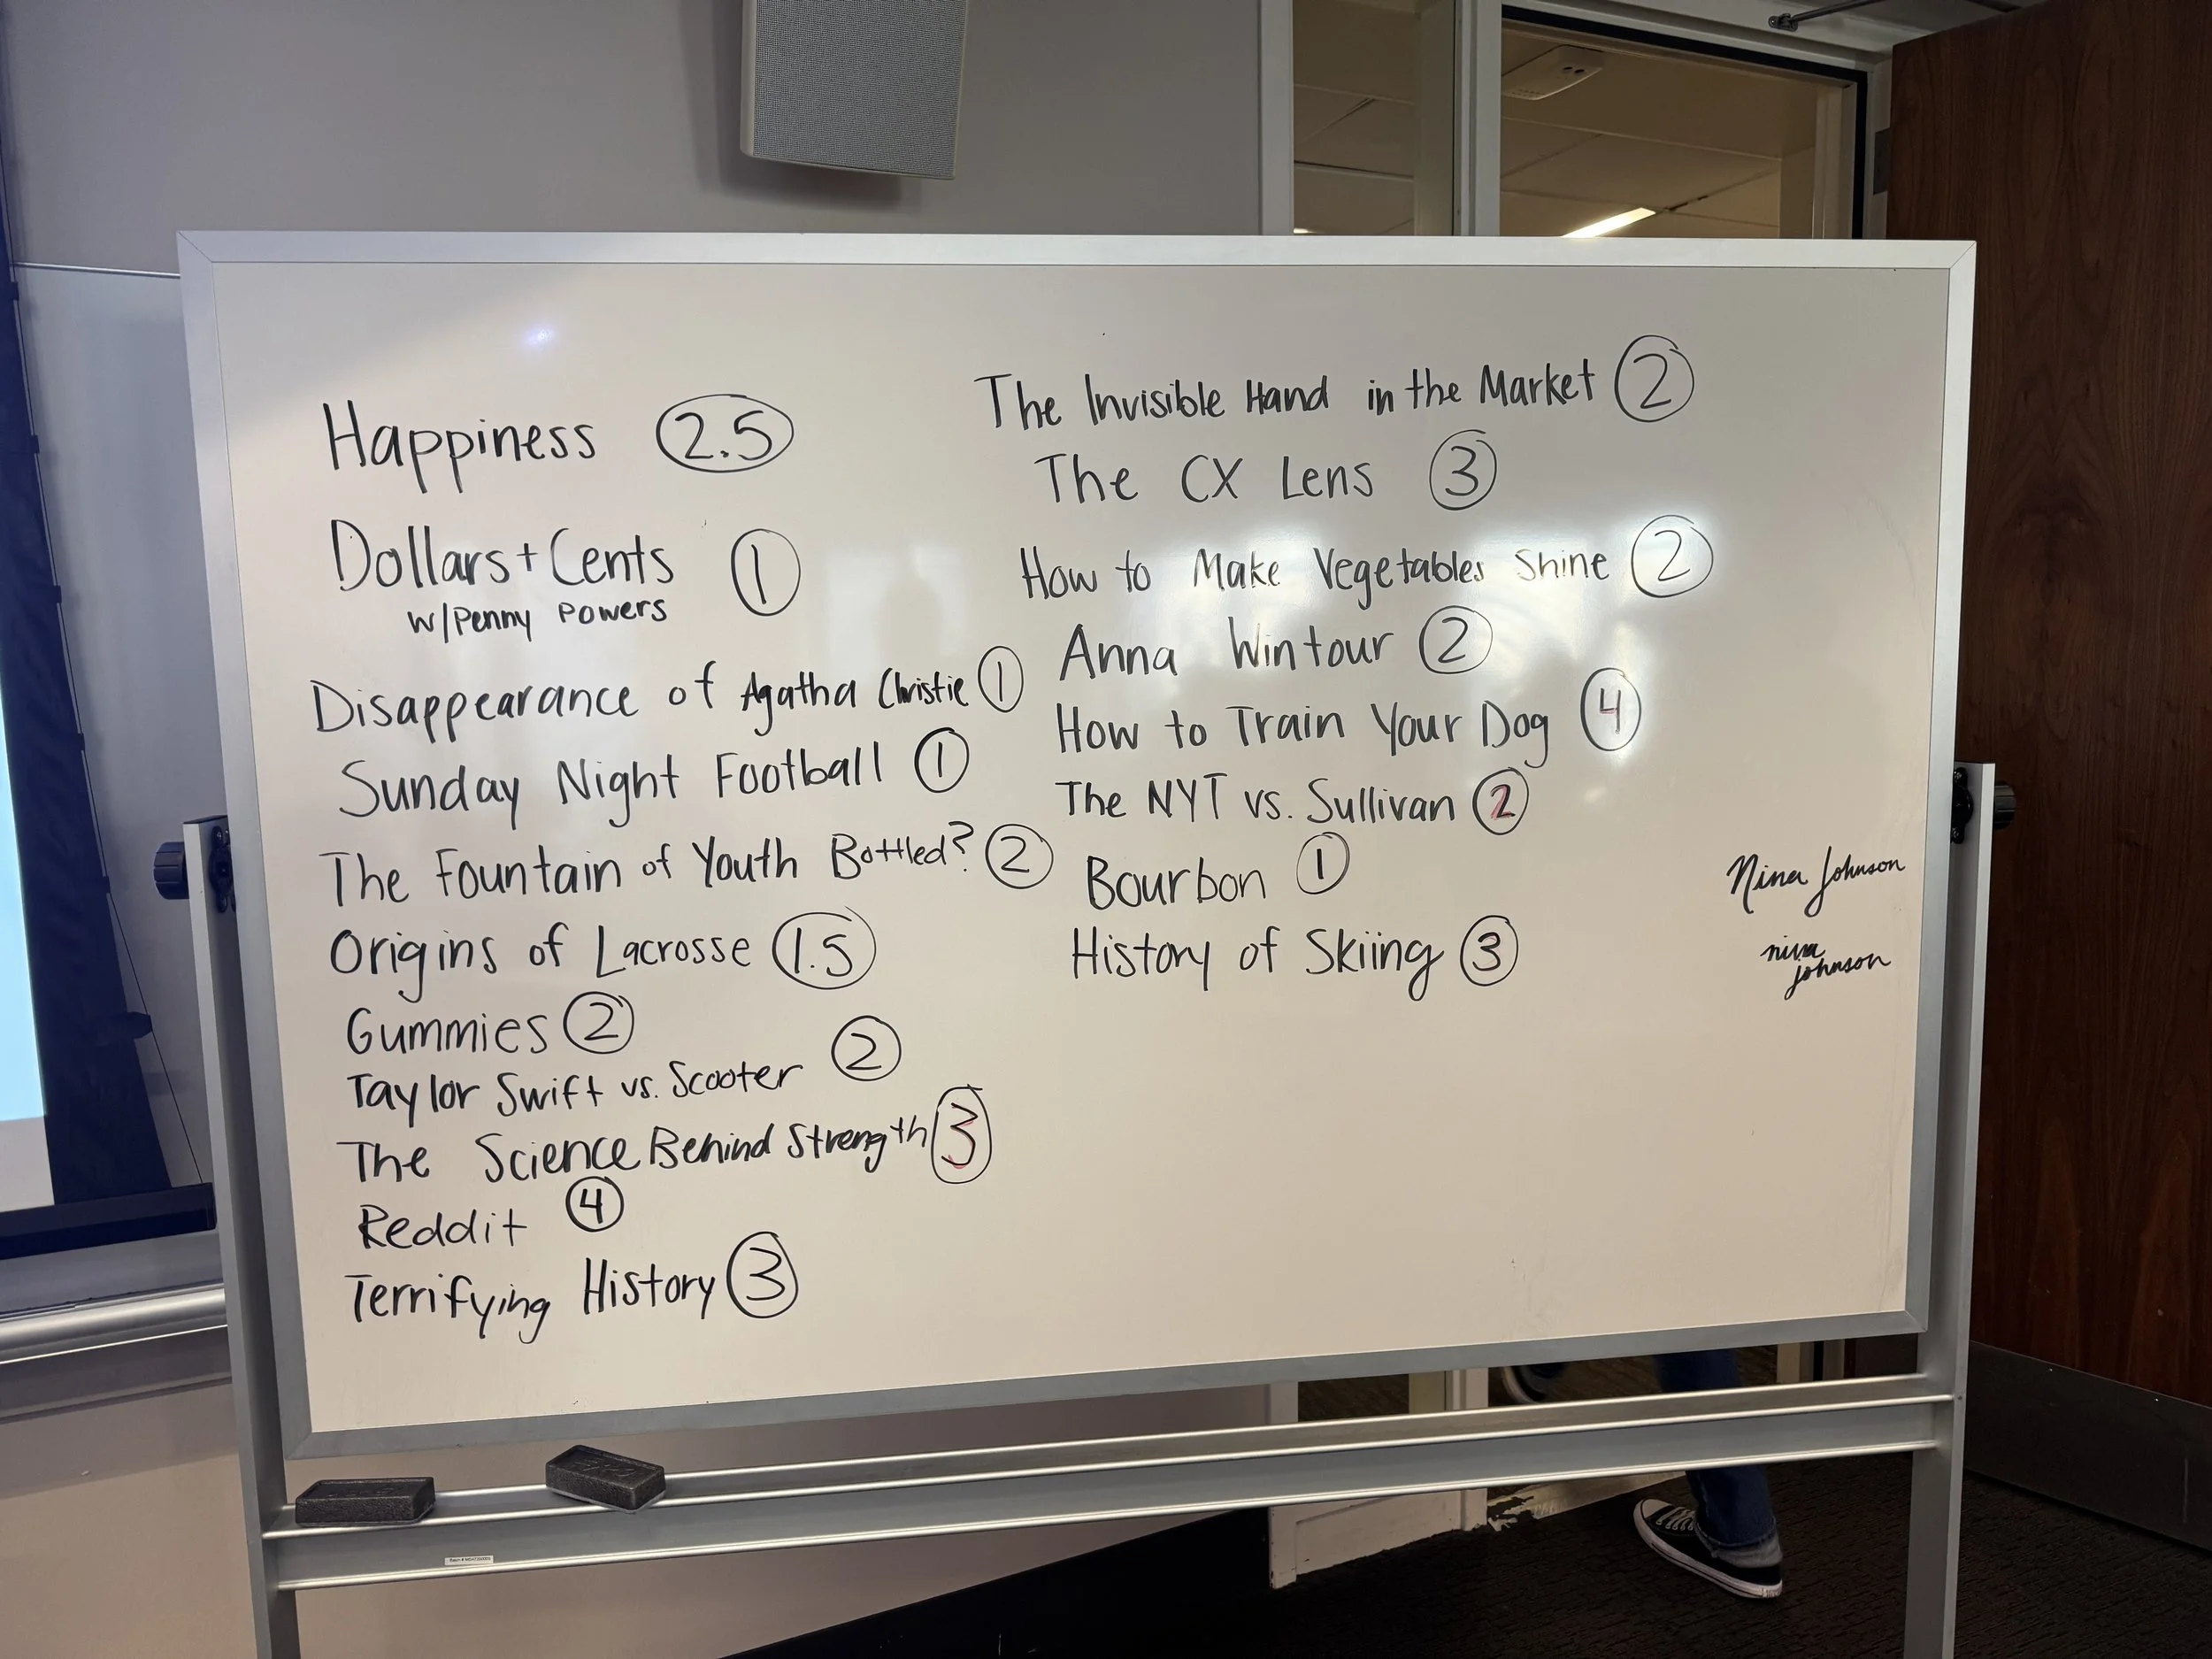 Happiness 2.5
Dollars + Cents 1
w/Penny Powers
Disappearance of Agatha Christie 1
Sunday Night Football 1
The Fountain of Youth Bottled? 2
Origins of Lacrosse 1.5
Gummies 2
Taylor Swift vs. Scooter 2
The Science Behind Strength 3
Reddit 4
Terrifying History 3
The Invisible Hand in the Market 2
The CX Lens 3
How to Make Vegetables Shine 2
Anna Wintour 2
How to Train Your Dog 4
The NYT vs. Sullivan 2
Bourbon 1
History of Skiing 3
Nina Johnson
nina
johnson